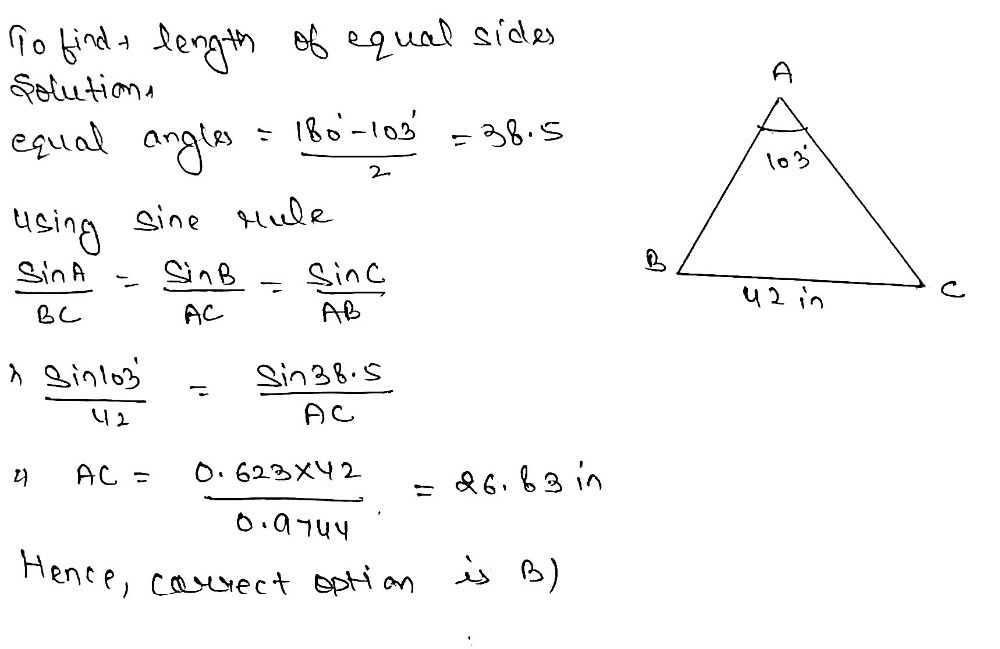 To find → length of equal sides
Solution,
equal angles = 180°-103° / 2 = 38.5
using sine rule
SinA / BC = SinB / AC = SinC / AB
Sin103° / 42 = Sin38.5 / AC
AC = 0.623X42 / 0.9744 = 26.83 in
Hence, correct option is B)
A
103°
B
42 in
C